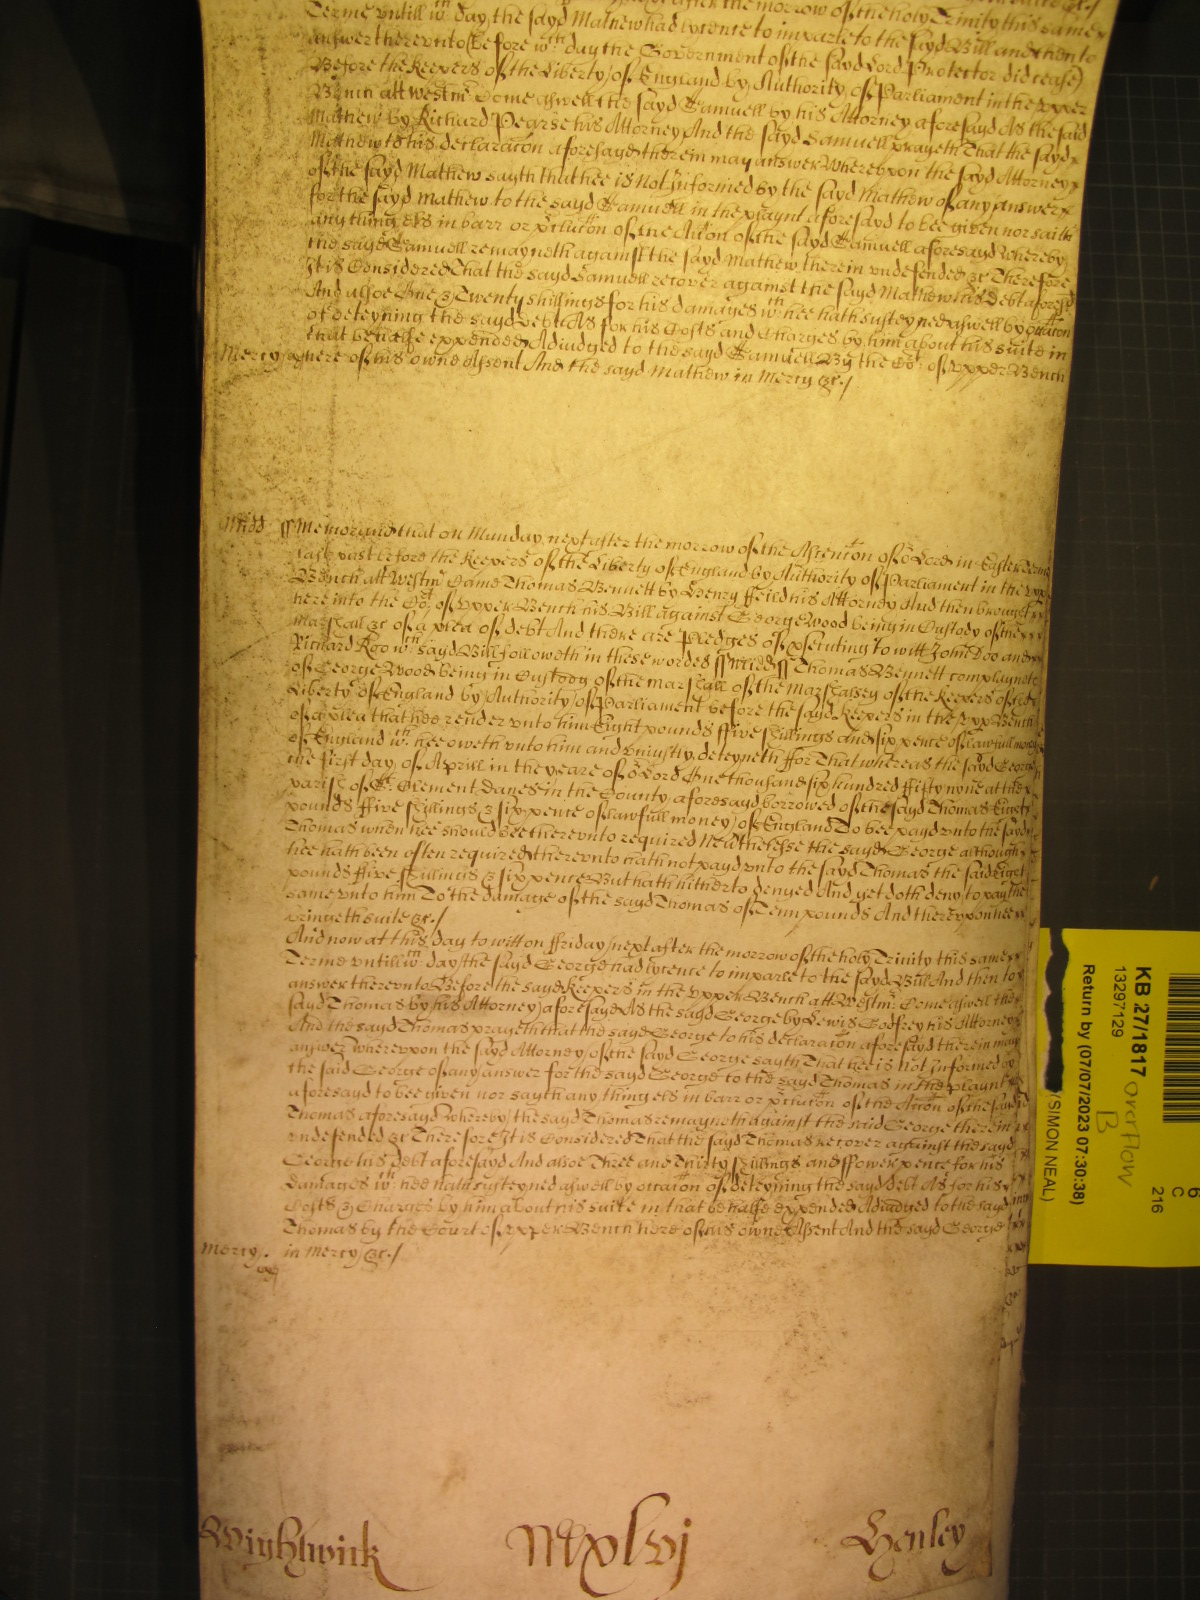 Terme untill wth day the sayd Mathew had lycence to imparle to the sayd Bill and then to
answer thereunto (before wth day the Government of the sayd Lord Protector did cease)
Before the Keepers of the Liberty of England by Authority of Parliament in the upper
Bench att Westmr Come aswell the sayd Samuell by his Attorney aforesayd As the said
Mathew by Richard Pearse his Attorney And the sayd Samuell prayeth That the sayd
Mathew to his declaracon aforesayd therein may answer Whereupon the sayd Attorney
of the sayd Mathew sayth that hee is Not Informed by the sayd Mathew of any answer
for the sayd Mathew to the sayd Samuell in the playnt aforesayd to bee given nor saith
anything els in barr or preclucon of the Accon of the sayd Samuell aforesayd Whereby
the sayd Samuell remayneth against the sayd Mathew therein undefended &c Therefore
It is Considered That the sayd Samuell recover against the sayd Mathew his Debt aforesd
And alsoe One & Twenty shillings for his damages wch hee hath susteyned aswell by occacon
of deteyning the sayd debt As for his Costs and Charges by him about his suite in
that behalfe expended Adjudged to the sayd Samuell By the Cort of upper Bench
Mercy here of his owne Assent And the sayd Mathew in Mercy &c./
Midd ss Memorand that on Munday next after the morrow of the Ascencon of or Lord in Easter Terme
last past before the Keepers of the Liberty of England by Authority of Parliament in the upp
Bench att Westmr Came Thomas Bennett by Henry Feild his Attorney And then brought
here into the Cort of upper Bench his Bill against George Wood being in Custody of the
Marshall &c of a plea of debt And there are pledges of prosecuting to witt John Doo and
Richard Roo wch sayd Bill followeth in these wordes ss Midd ss Thomas Bennett complayneth
of George Wood being in Custody of the Marshall of the Marshalsey of the Keepers of the
Liberty of England by Authority of Parliament before the sayd Keepers in the upp Bench
of a plea that hee render unto him Eight pounds ffive shillings and six pence of lawfull money
of England wch hee oweth unto him and uniustly deteyneth ffor That whereas the sayd George
the first day of Aprill in the yeare of or Lord One thousand six hundred ffifty nyne at the
parish of St Clement Danes in the County aforesayd borrowed of the sayd Thomas Eight
pounds ffive shillings & six pence of lawfull money of England To bee payd unto the sayd
Thomas when hee should bee thereunto required Neverthelesse the sayd George although
hee hath been often required thereunto hath not payd unto the sayd Thomas the said Eight
pounds ffive shillings & six pence But hath hitherto denyed And yet doth deny to pay the
same unto him To the damage of the sayd Thomas of Tenn pounds And thereupon hee
bringeth suite &c./
And now at this day to witt on ffriday next after the morrow of the holy Trinity this same
Terme untill wch day the sayd George had lycence to imparle to the sayd Bill And then to
answer thereunto Before the sayd Keepers in the upper Bench att Westmr Come aswell the
sayd Thomas by his Attorney aforesayd As the sayd George by Lewis Godfrey his Attorney
And the sayd Thomas prayeth that the sayd George to his declaracon aforesayd therein may
answer whereupon the sayd Attorney of the sayd George sayth That hee is not informed by
the said George of any answer for the sayd George to the sayd Thomas in the playnt
aforesayd to bee given nor sayth any thing els in barr or preclucon of the Accon of the said
Thomas aforesayd whereby the sayd Thomas remayneth against the said George therein
undefended &c Therefore It is Considered That the sayd Thomas recover against the sayd
George his debt aforesayd And alsoe Three and Thirty shillings and ffower pence for his
damages wch hee hath susteyned aswell by occacon of deteyning the sayd debt As for his
Costs & Charges by him about his suite in that behalfe expended Adjudged to the sayd
Thomas by the Court of upper Bench here of his owne Assent And the sayd George
Mercy. in Mercy &c./
Wightwick Mlxlvj Henley
KB 27/1817 overflow
B
13297129
Return by (07/07/2023 07:30:38)
/SIMON NEAL)
6
C
216